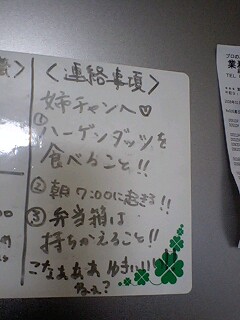 〈連絡事項〉
姉チャンへ♡
①
ハーゲンダッツを
食べること!!
②朝7:00に起きる!!
③弁当箱は
持ちかえること!!
こなぁぁぁゆきぃぃ!!
ねぇ?
プロの
業務
TEL